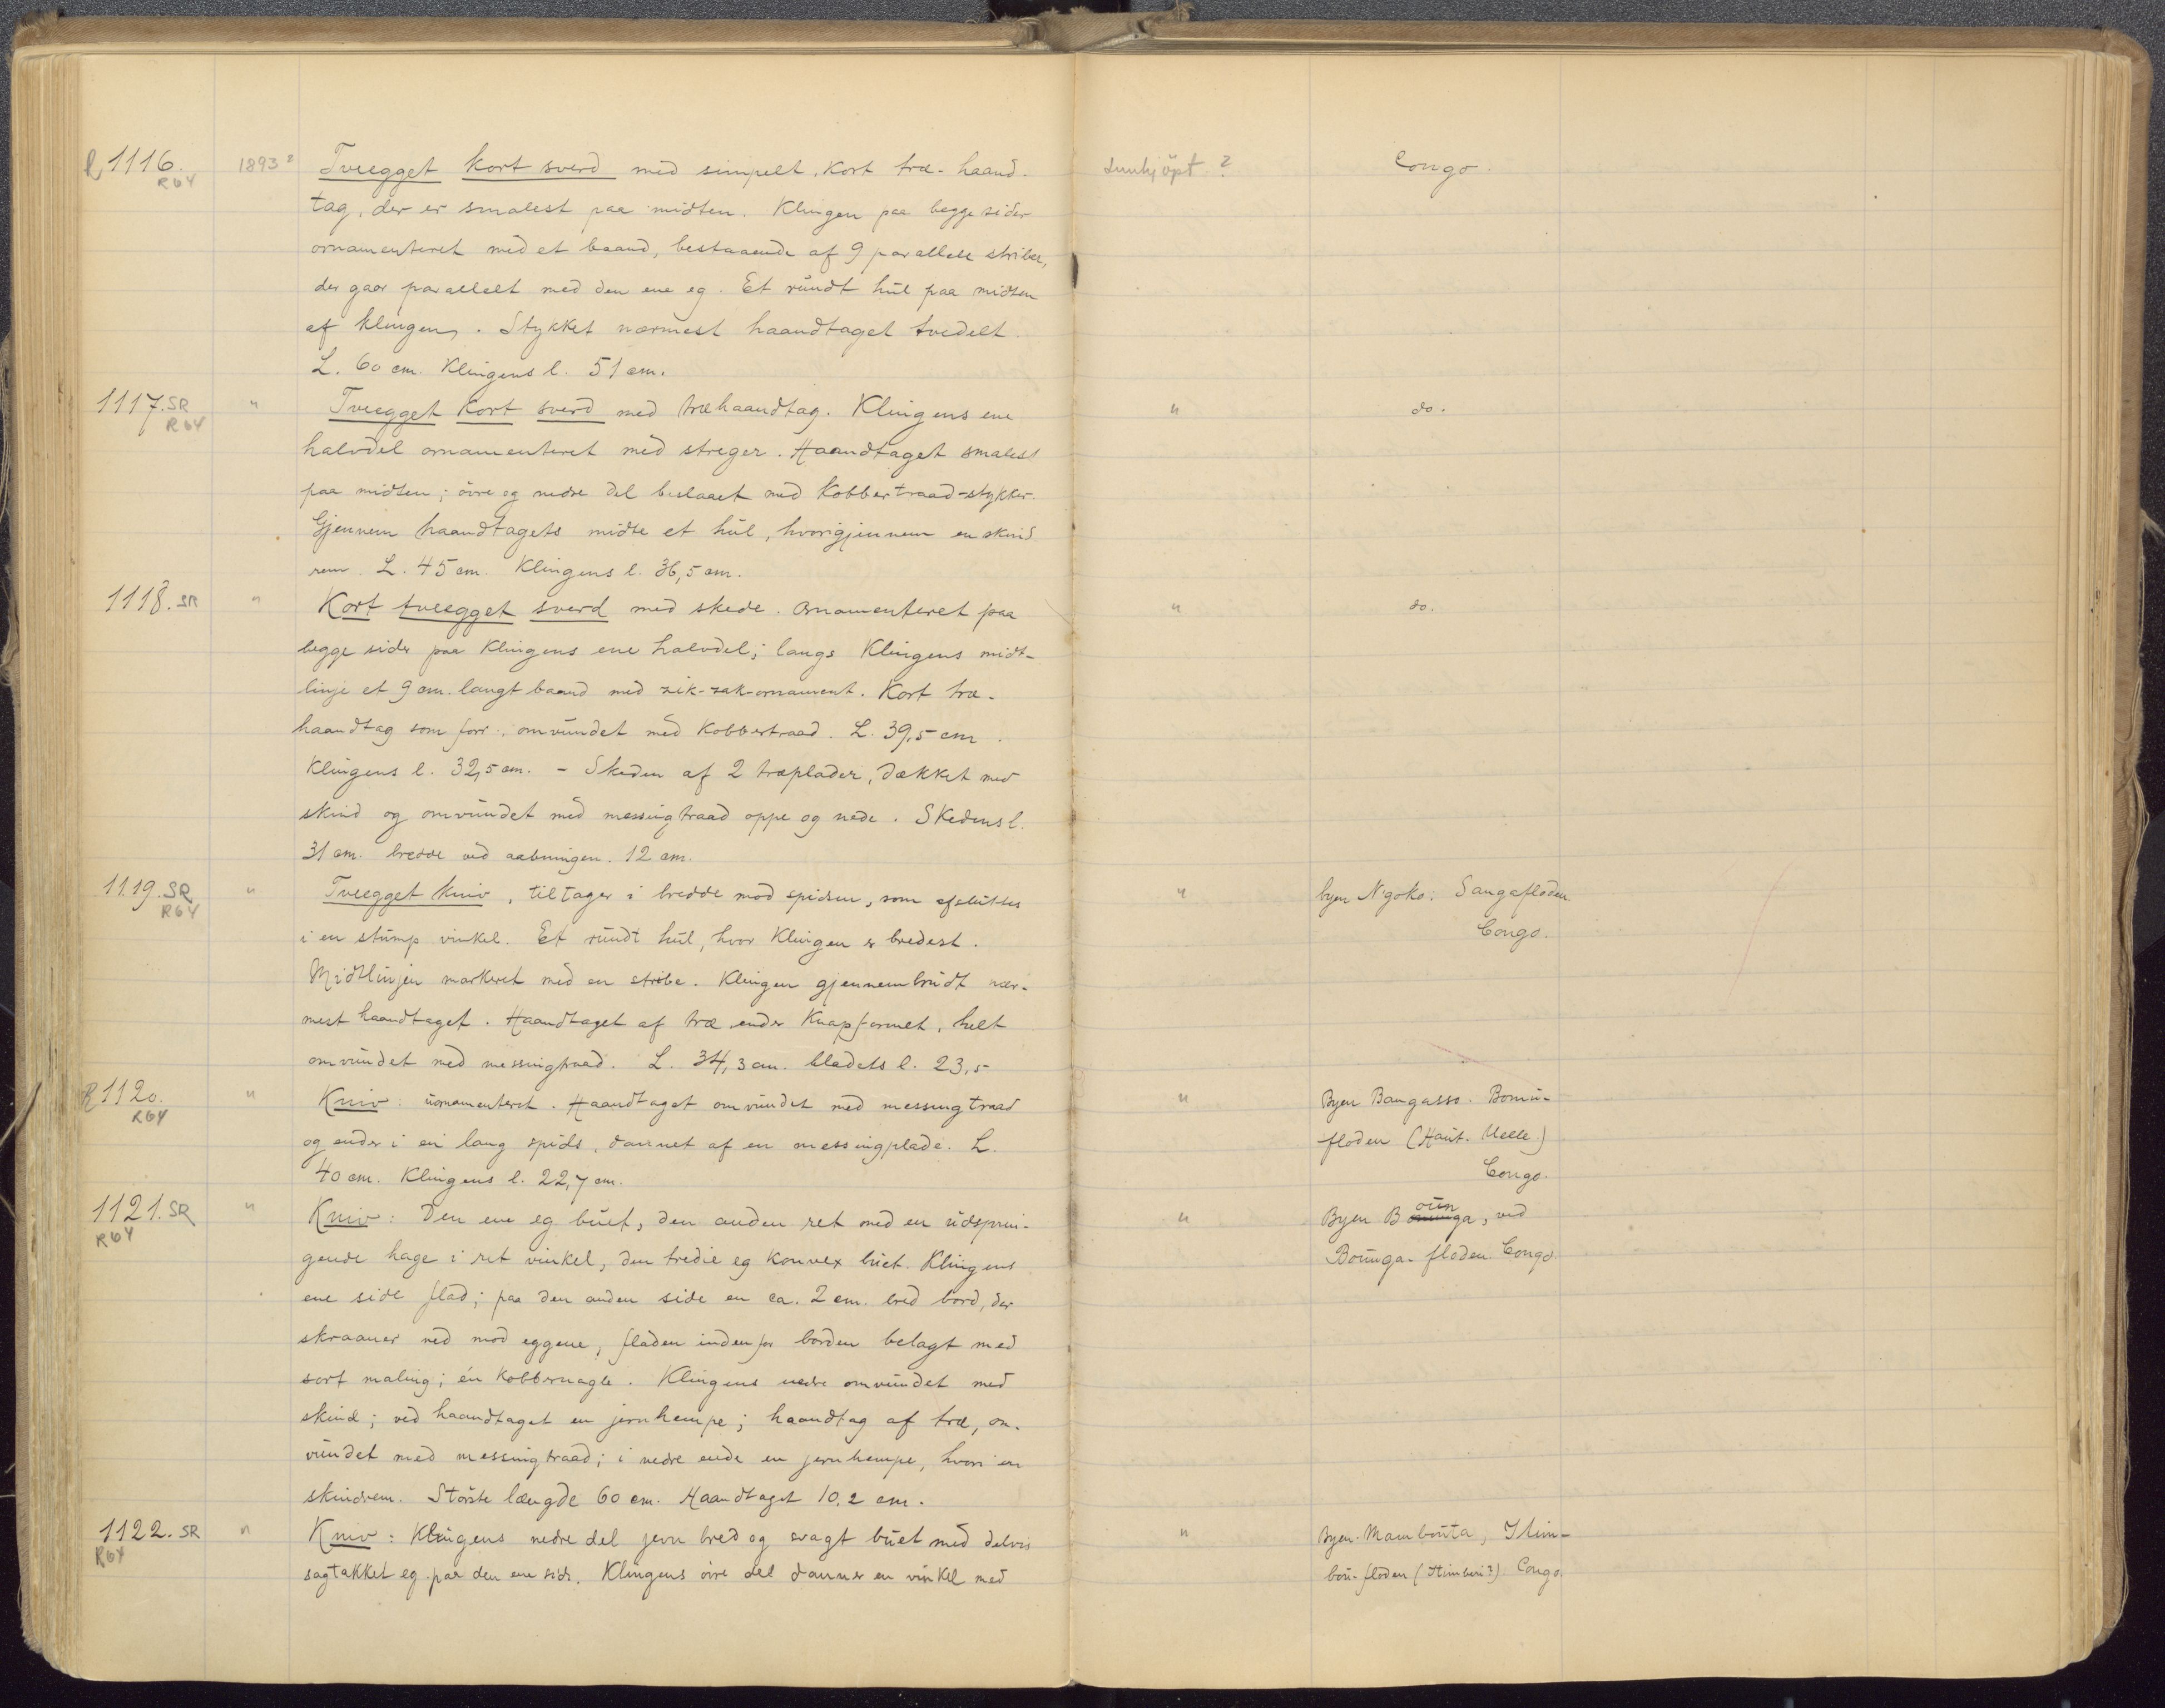 R 1116. 1893? Tveegget kort sverd med simpelt, kort træ-haand- Innkjöpt? Congo.
R64 tag, der er smalest paa midten. Klingen paa begge sider
ornamenteret med et baand, bestaaende af 9 parallele striber,
der gaar parallelt med den ene eg. Et rundt hul paa midten
af klingen. Stykket nærmest haandtaget tvedelt.
L. 60 cm. Klingens l. 51 cm.
1117. SR " Tveegget kort sverd med træhaandtag. Klingens ene " do.
R64 halvdel ornamenteret med streger. Haandtaget smalest
paa midten; övre og nedre del beslaaet med Kobbertraad-stykker.
Gjennem haandtagets midte et hul, hvorigjennem en skind
rem. L. 45 cm. Klingens l. 36,5 cm.
1118. SR " Kort tveegget sverd med skede. Ornamenteret paa " do.
begge sider paa Klingens ene halvdel; langs Klingens midt-
linje et 9 cm. langt baand med zik-zak-ornament. Kort træ-
haandtag som forr., omvundet med Kobbertraad. L. 39,5 cm.
Klingens l. 32,5 cm. - Skeden af 2 træplader, dækket med
skind og omvundet med messingtraad oppe og nede. Skedens l.
31 cm. bredde ved aabningen. 12 cm.
1119. SR " Tveegget kniv, tiltager i bredde mod spidsen, som afsluttes " byen N'goko: Sangafloden
R64 i en stump vinkel. Et rundt hul, hvor Klingen er bredest. Congo.
Midtlinjen markeret med en stribe. Klingen gjennembrudt nær-
mest haandtaget. Haandtaget af træ ender Knapformet, helt
omvundet med messingtraad. L. 34,3 cm. bladets l. 23,5
R 1120. " Kniv: uornamenteret. Haandtaget omvundet med messingtraad " Byen Bangasso. Bomu-
R64 og ender i en lang spids, dannet af en messingplade. L. floden (Haut. Uelle)
40 cm. Klingens l. 22,7 cm. Congo.
1121. SR " Kniv: Den ene eg buet, den anden ret med en udsprin- " Byen Bounga, ved
R64 gende hage i ret vinkel, den tredie eg konvex buet. Klingens Bounga-floden. Congo.
ene side flad; paa den anden side en ca. 2 cm. bred bord, der
skraaner ned mod eggene, fladen indenfor borden belagt med
sort maling; én Kobbernagle. Klingens nedre omvundet med
skind; ved haandtaget en jernhempe; haandtag af træ, om-
vundet med messingtraad; i nedre ende en jernhempe, hvori en
skindrem. Störste længde 60 cm. Haandtaget 10,2 cm.
1122. SR " Kniv: Klingens nedre del jevn bred og svagt buet med delvis " Byen Mambouta, Itim-
R64 sagtakket eg paa den ene side. Klingens övre del danner en vinkel med bou-floden (Itimbiri?). Congo.